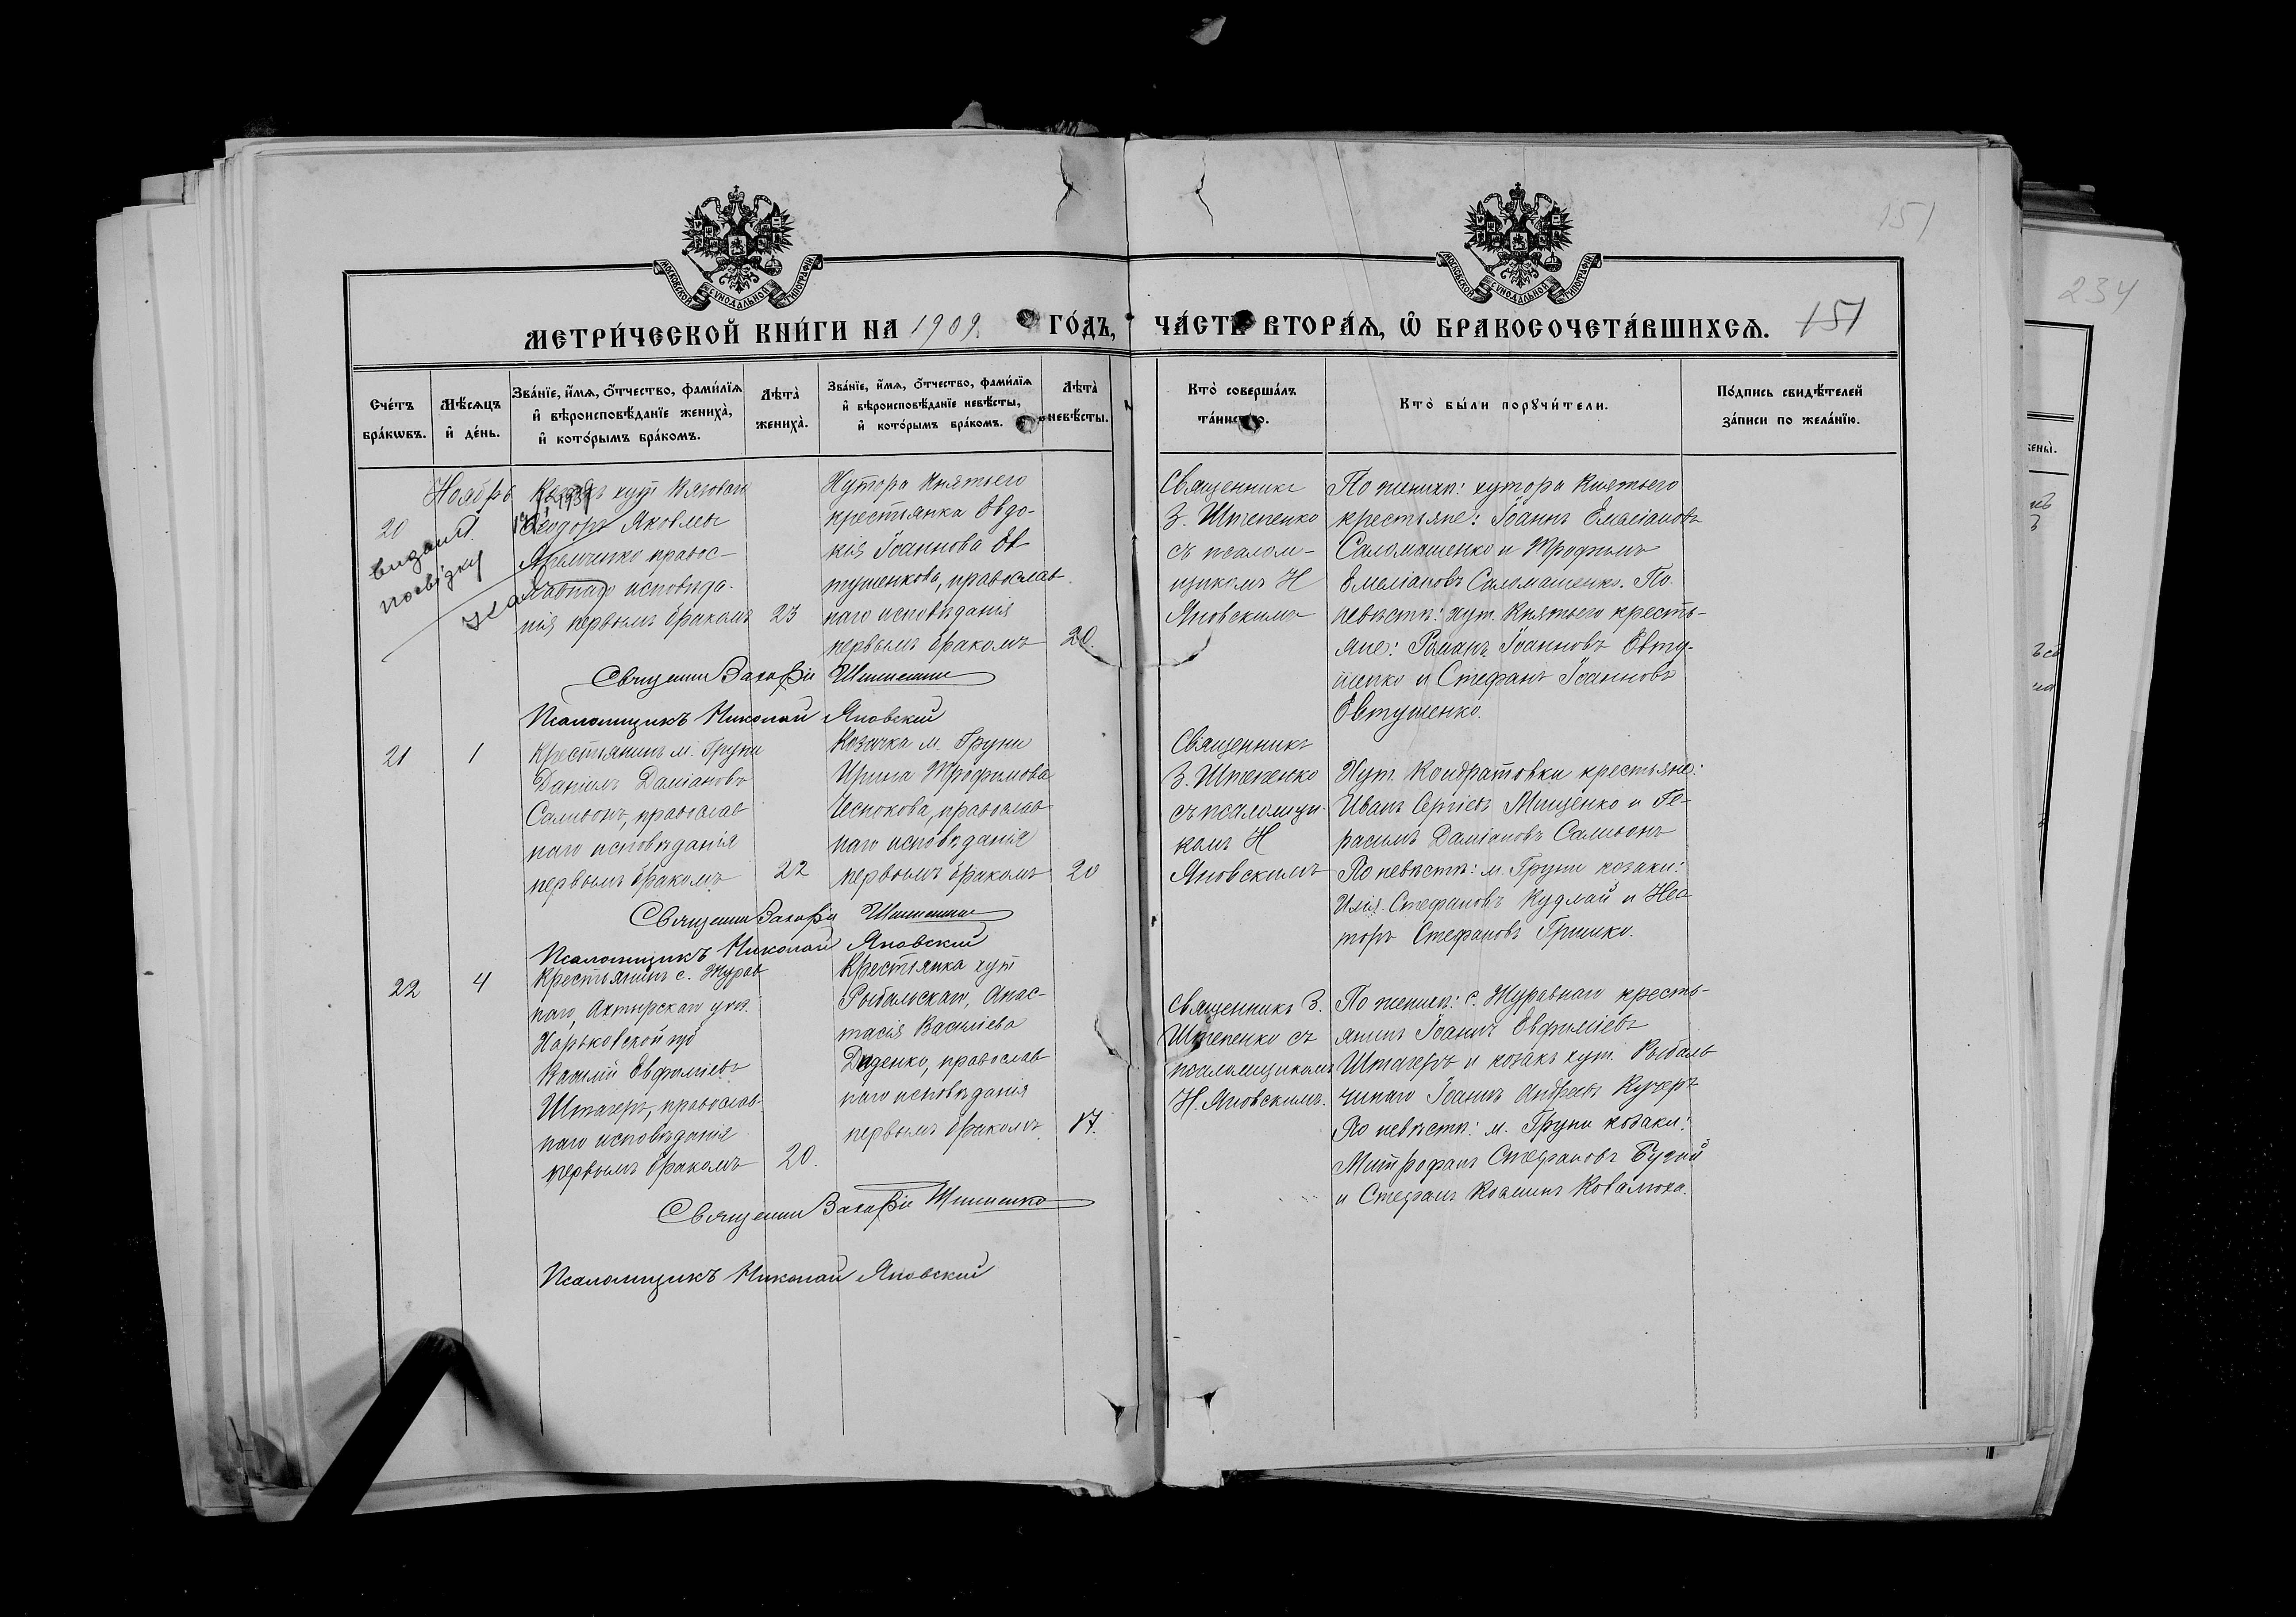 151
234
МОСКОВСКОЙ СѴНОДАЛЬНОЙ ТИПОГРАФІИ
МОСКОВСКОЙ СѴНОДАЛЬНОЙ ТИПОГРАФІИ
МЕТРИ́ЧЕСКОЙ КНИ́ГИ НА 1909 ГО́ДЪ,
ЧА́СТЬ ВТОРА́Я, Ѡ҆ БРАКОСОЧЕТА́ВШИХСѦ. 151
Сче́тъ бра́кѡвъ.
Мѣ́сѧцъ и҆ де́нь.
Зва́нїе, и҆́мѧ, ѻ҆́тчество, фами́лїѧ и҆ вѣроисповѣ́данїе жениха̀, и҆ кото́рымъ бра́комъ.
Лѣта̀ жениха̀.
Зва́нїе, и҆́мѧ, ѻ҆́тчество, фами́лїѧ и҆ вѣроисповѣ́данїе невѣ́сты, и҆ кото́рымъ бра́комъ.
Лѣта̀ невѣ́сты.
Кто̀ соверша́лъ та́инство.
Кто̀ бы́ли порꙋчи́тели.
По́дпись свидѣ́телей за́писи по жела́нїю.
Ноябрь
20
видані
посвідку
хут
Яковлев
правос-
исповѣда-
нія первымъ бракомъ
23
Хутора Княжьего
крестьянка Евдо-
кія Іоаннова Ев
тушенкова, православ
наго исповѣданія
первымъ бракомъ
20.
Священникъ
З. Штепенко
съ псалом-
щикомъ Н
Яновскимъ
По женихѣ: хутора Княжьего
крестьяне: Іоаннъ Емеліановъ
Саломашенко и Трофимъ
Емеліановъ Саломашенко. По
невѣстѣ: хут. Княжьего кресть-
яне: Романъ Іоанновъ Евту-
шенко и Стефанъ Іоанновъ
Евтушенко.
Священник Захарій Штепенко
Псаломщикъ Николай Яновскій
21
1
Крестьянинъ м. Груни
Даніилъ Даміановъ
Саливонъ, православ
наго исповѣданія
первымъ бракомъ
22
Козачка м. Груни
Ирина Трофимова
Чеснокова, православ
наго исповѣданія
первымъ бракомъ
20
Священникъ
З. Штепенко
съ псаломщи-
комъ Н
Яновскимъ
Хут. Кондратовки крестьяне:
Иванъ Сергіевъ Мищенко и Ге-
расимъ Даміановъ Саливонъ
По невѣстѣ: м. Груни козаки:
Илія Стефановъ Кудлай и Нес
торъ Стефановъ Гришко.
Священник Захарій Штепенко
Псаломщикъ Николай Яновскій
22
4
Крестьянинъ с. Журав
наго, Ахтырскаго уѣз.
Харьковской губ
Василій Евфиміевъ
Штагеръ, православ-
наго исповѣданія
первымъ бракомъ
20.
Крестьянка хут
Рыбальскаго, Анас-
тасія Василіева
Деденко, православ
наго исповѣданія
первымъ бракомъ
17.
Священникъ З.
Штепенко съ
псаломщикомъ
Н. Яновскимъ.
По женихѣ: с. Журавнаго кресть-
янинъ Іоаннъ Евфиміевъ
Штагеръ и козакъ хут. Рыбаль
Іоаннъ Андреевъ Кучеръ
По невѣстѣ: м. Груни козаки:
Митрофанъ Стефановъ
и Стефанъ Косминъ Ковалюха.
Священник Захарій Штепенко
Псаломщикъ Николай Яновскій